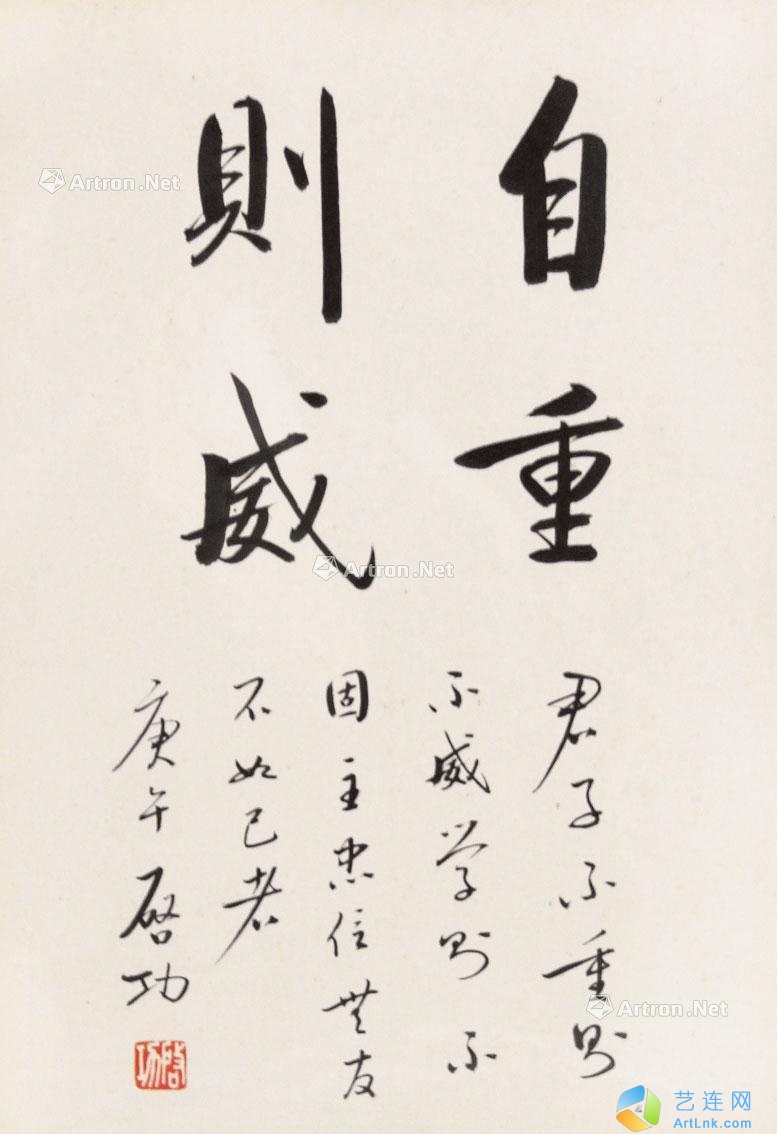 自重
則威
君子不重则
不威学则不
固主忠信無友
不如己者
庚午启功
啟功
Artron.Net
Artron.Net
Artron.Net
艺连网
ArtLnk.com